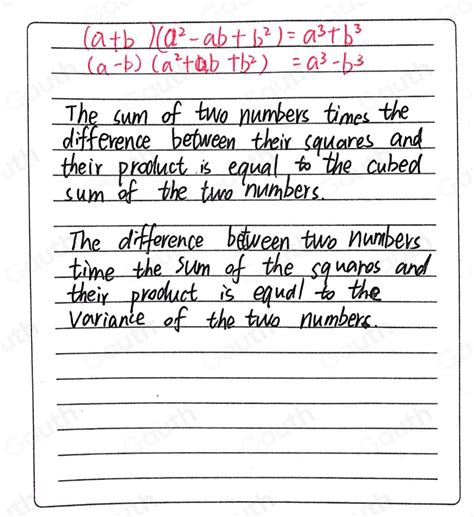 (a+b)(a²-ab+b²)=a³+b³
(a-b)(a²+ab+b²) =a³-b³
The sum of two numbers times the
difference between their squares and
their product is equal to the cubed
sum of the two numbers.
The difference between two numbers
time the sum of the squares and
their product is equal to the
variance of the two numbers.